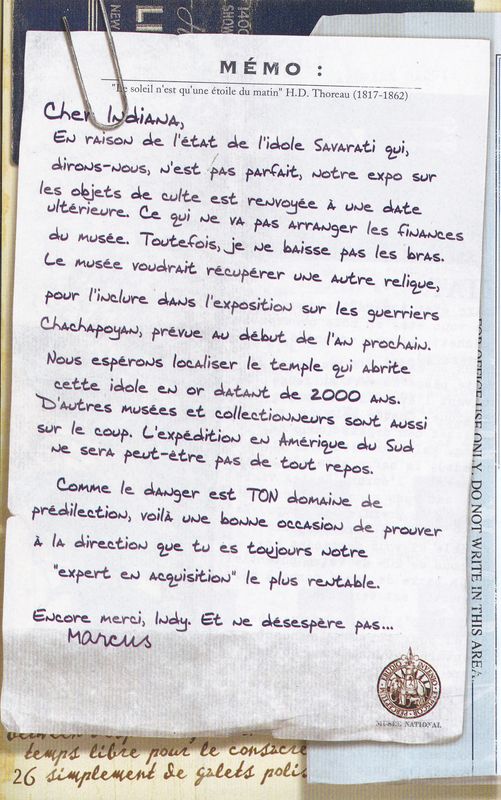 MÉMO :
"Le soleil n'est qu'une étoile du matin" H.D. Thoreau (1817-1862)
Cher Indiana,
En raison de l'état de l'idole Savarati qui,
dirons-nous, n'est pas parfait, notre expo sur
les objets de culte est renvoyée à une date
ultérieure. Ce qui ne va pas arranger les finances
du musée. Toutefois, je ne baisse pas les bras.
Le musée voudrait récupérer une autre relique,
pour l'inclure dans l'exposition sur les guerriers
Chachapoyan, prévue au début de l'an prochain.
Nous espérons localiser le temple qui abrite
cette idole en or datant de 2000 ans.
D'autres musées et collectionneurs sont aussi
sur le coup. L'expédition en Amérique du Sud
ne sera peut-être pas de tout repos.
Comme le danger est TON domaine de
prédilection, voilà une bonne occasion de prouver
à la direction que tu es toujours notre
"expert en acquisition" le plus rentable.
Encore merci, Indy. Et ne désespère pas...
Marcus
MUSÉE NATIONAL
OFFICE USE ONLY. DO NOT WRITE IN THIS AREA
temps libre pour le consacre
26 simplement de galets polis